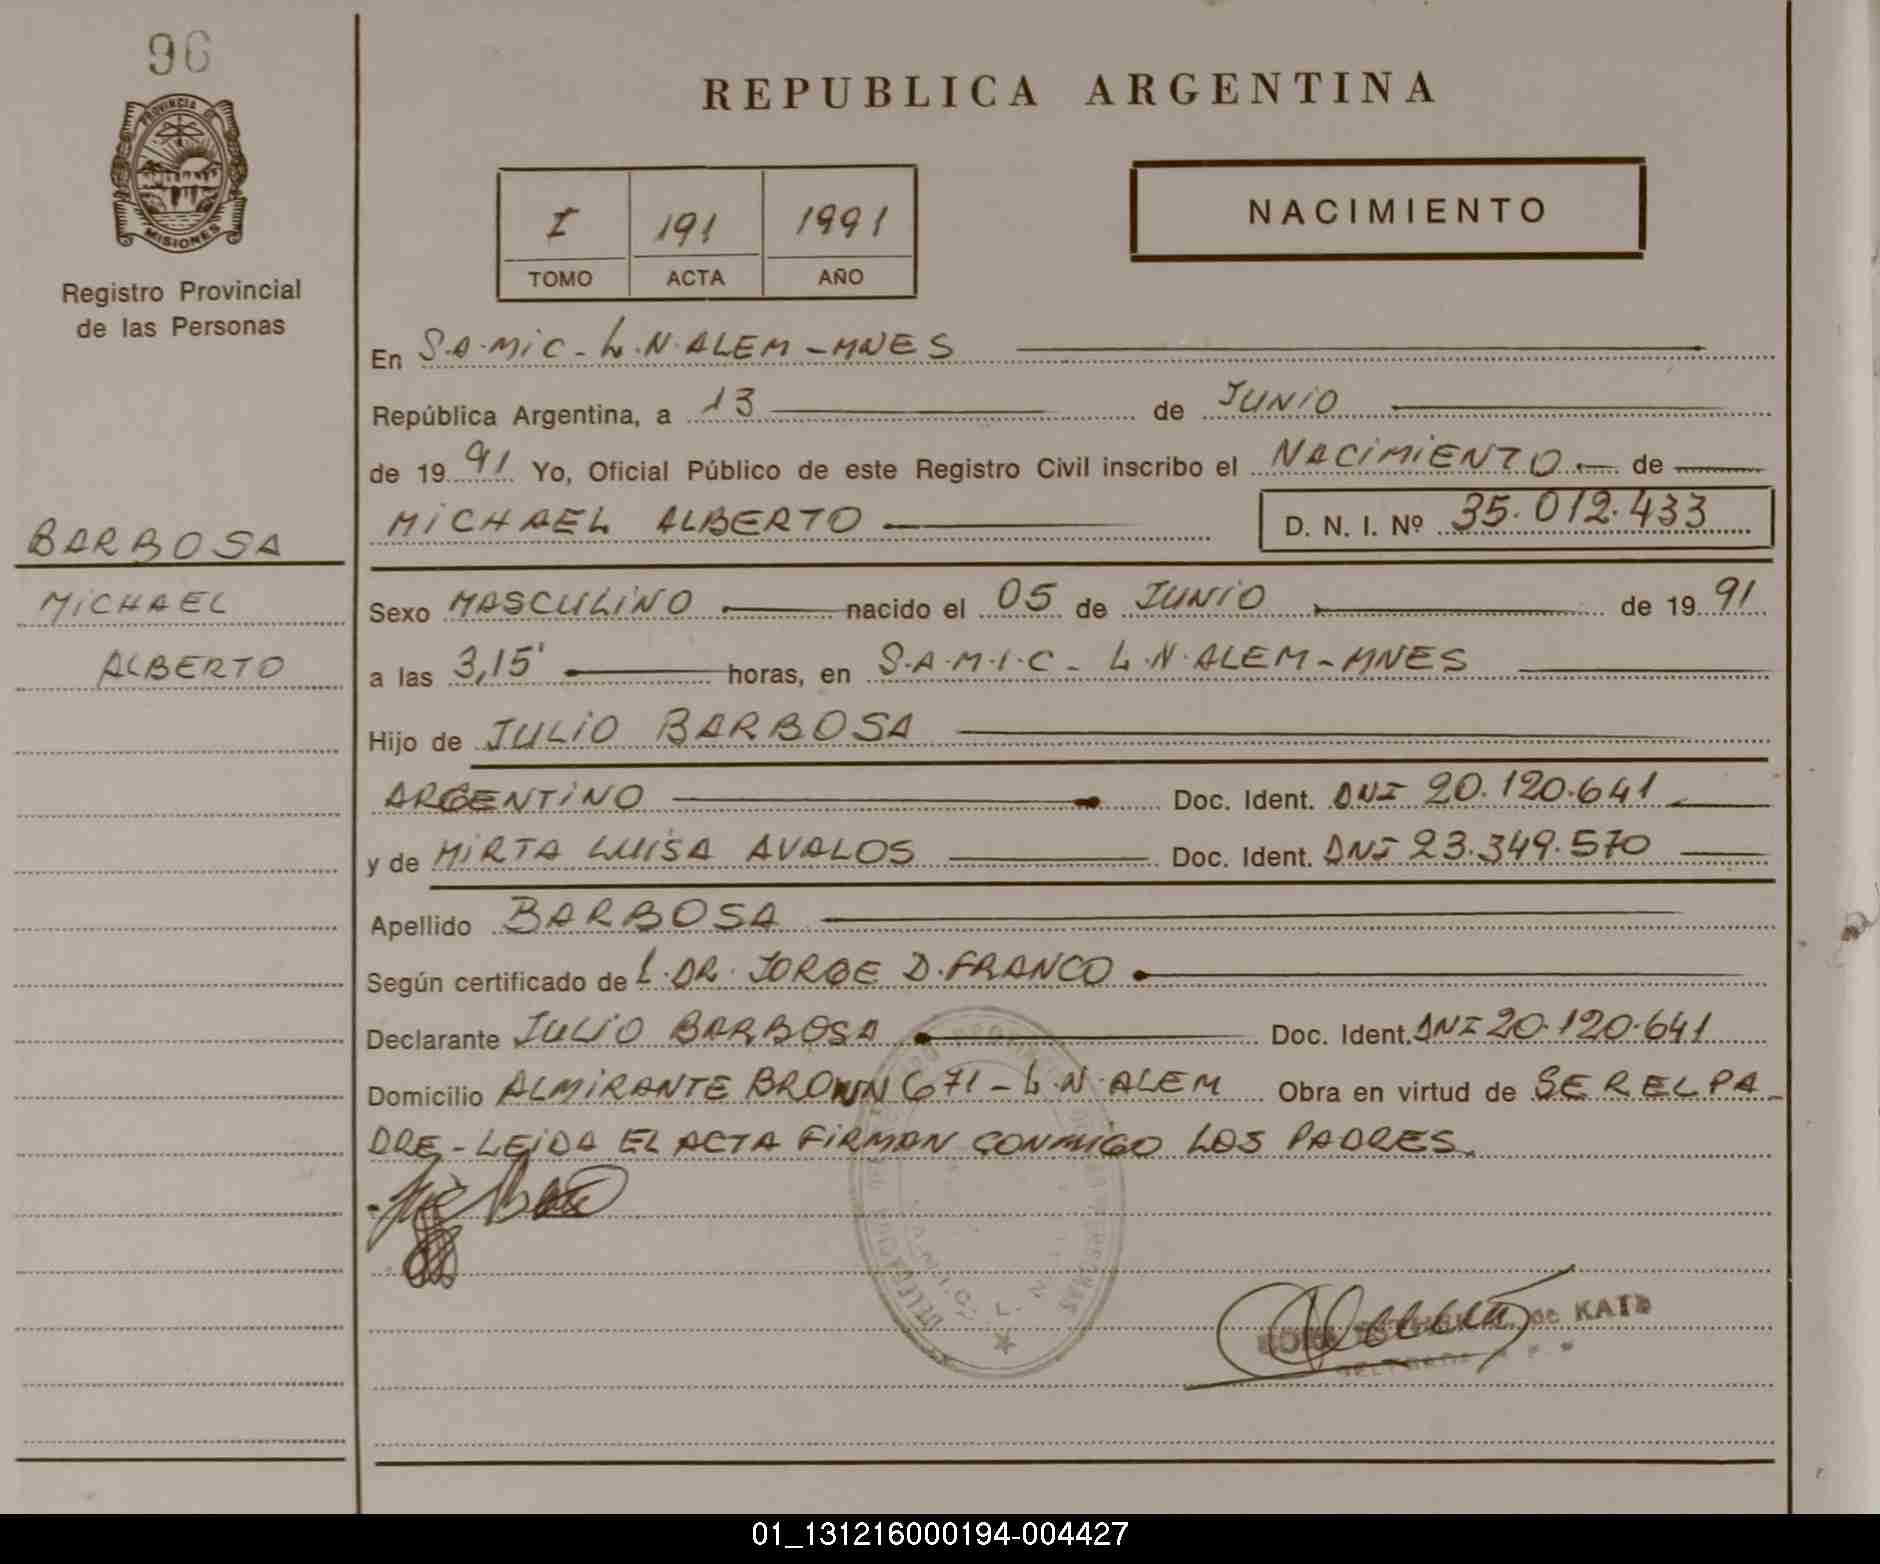 96
PROVINCIA DE
MISIONES
Registro Provincial
de las Personas
BARBOSA
MICHAEL
ALBERTO
REPUBLICA ARGENTINA
I 191 1991
TOMO ACTA AÑO
NACIMIENTO
En S.A.MIC - L.N.ALEM - MNES
República Argentina, a 13 de JUNIO
de 1991 Yo, Oficial Público de este Registro Civil inscribo el NACIMIENTO de
MICHAEL ALBERTO D. N. I. Nº 35.012.433
Sexo MASCULINO nacido el 05 de JUNIO de 1991
a las 3,15' horas, en S.A.M.I.C - L.N.ALEM - MNES
Hijo de JULIO BARBOSA
ARGENTINO Doc. Ident. DNI 20.120.641
y de MIRTA LUISA AVALOS Doc. Ident. DNI 23.349.570
Apellido BARBOSA
Según certificado de L.DR. JORGE D.FRANCO
Declarante JULIO BARBOSA Doc. Ident. DNI 20.120.641
Domicilio ALMIRANTE BROWN 671 - L.N.ALEM Obra en virtud de SER EL PA-
DRE - LEIDA EL ACTA FIRMAN CONMIGO LOS PADRES.
S.A.M.I.C. L. N.
de KATZ
01_131216000194-004427